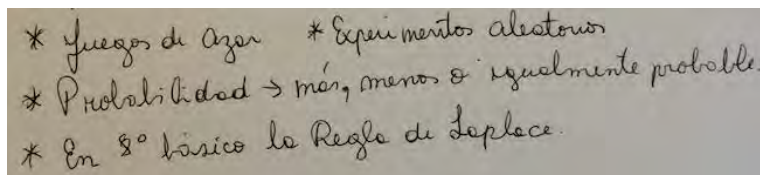 * Juegos de azar * Experimentos aleatorios
* Probabilidad → más, menos o igualmente probable.
* En 8° básico la Regla de Laplace.